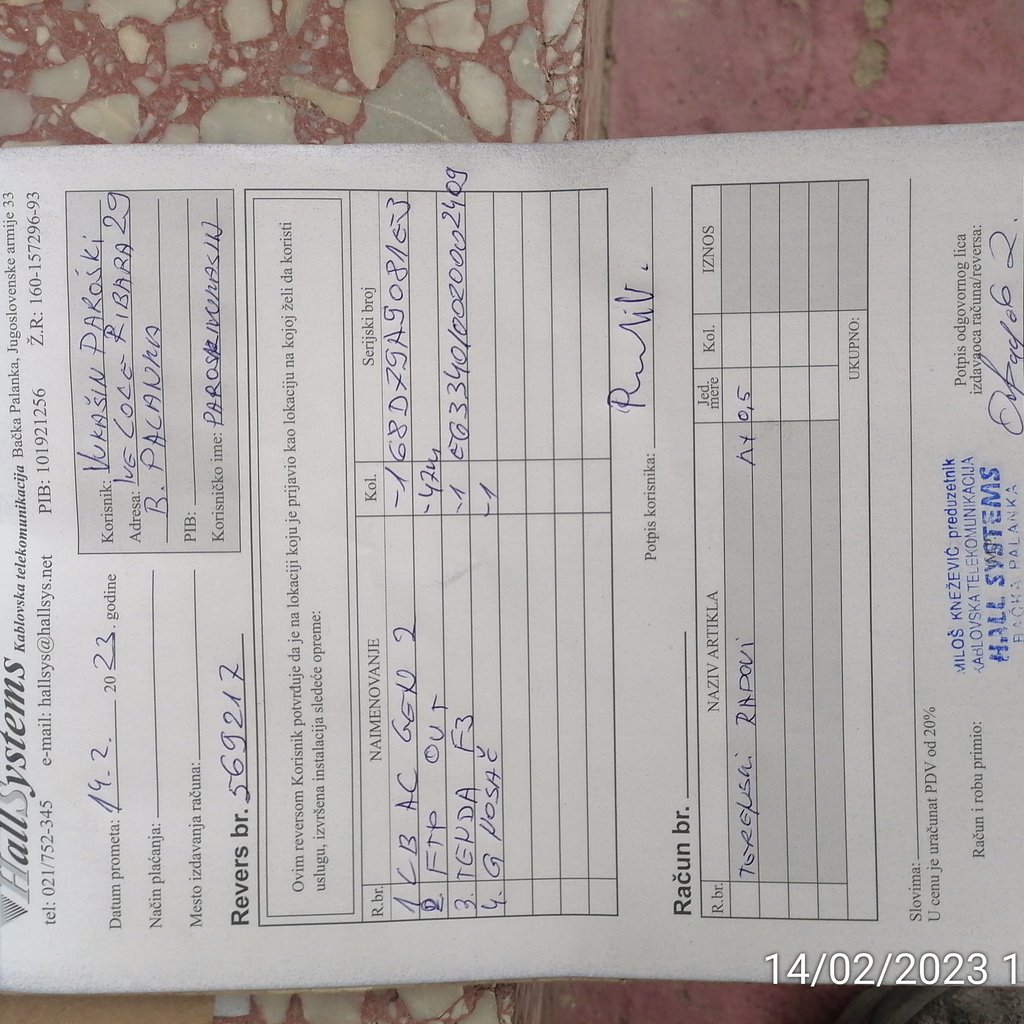 HallSystems Kablovska telekomunikacija Bačka Palanka, Jugoslovenske armije 33
tel: 021/752-345 e-mail: hallsys@hallsys.net PIB: 101921256 Ž.R: 160-157296-93
Datum prometa: 14.2. 20 23. godine
Način plaćanja:
Mesto izdavanja računa:
Korisnik: VUKAŠIN PAROŠKI
Adresa: IVE LOLE RIBARA 29
B. PALANKA
PIB:
Korisničko ime:
Revers br. 569217
Ovim reversom Korisnik potvrđuje da je na lokaciji koju je prijavio kao lokaciju na kojoj želi da koristi
uslugu, izvršena instalacija sledeće opreme:
R.br. NAIMENOVANJE Kol. Serijski broj
1 LB AC GEN 2 -1 68D79A9081E3
2. FTP OUT -42m
3. TENDA F3 -1 E0334010020002409
4. G NOSAČ -1
Potpis korisnika:
Račun br.
R.br. NAZIV ARTIKLA Jed. mere Kol. IZNOS
TERENSKI RADOVI 0,5
UKUPNO:
Slovima:
U cenu je uračunat PDV od 20%
Račun i robu primio:
Potpis odgovornog lica
izdavaoca računa/reversa:
MILOŠ KNEŽEVIĆ preduzetnik
KABLOVSKA TELEKOMUNIKACIJA
HALL SYSTEMS
BAČKA PALANKA
14/02/2023 1